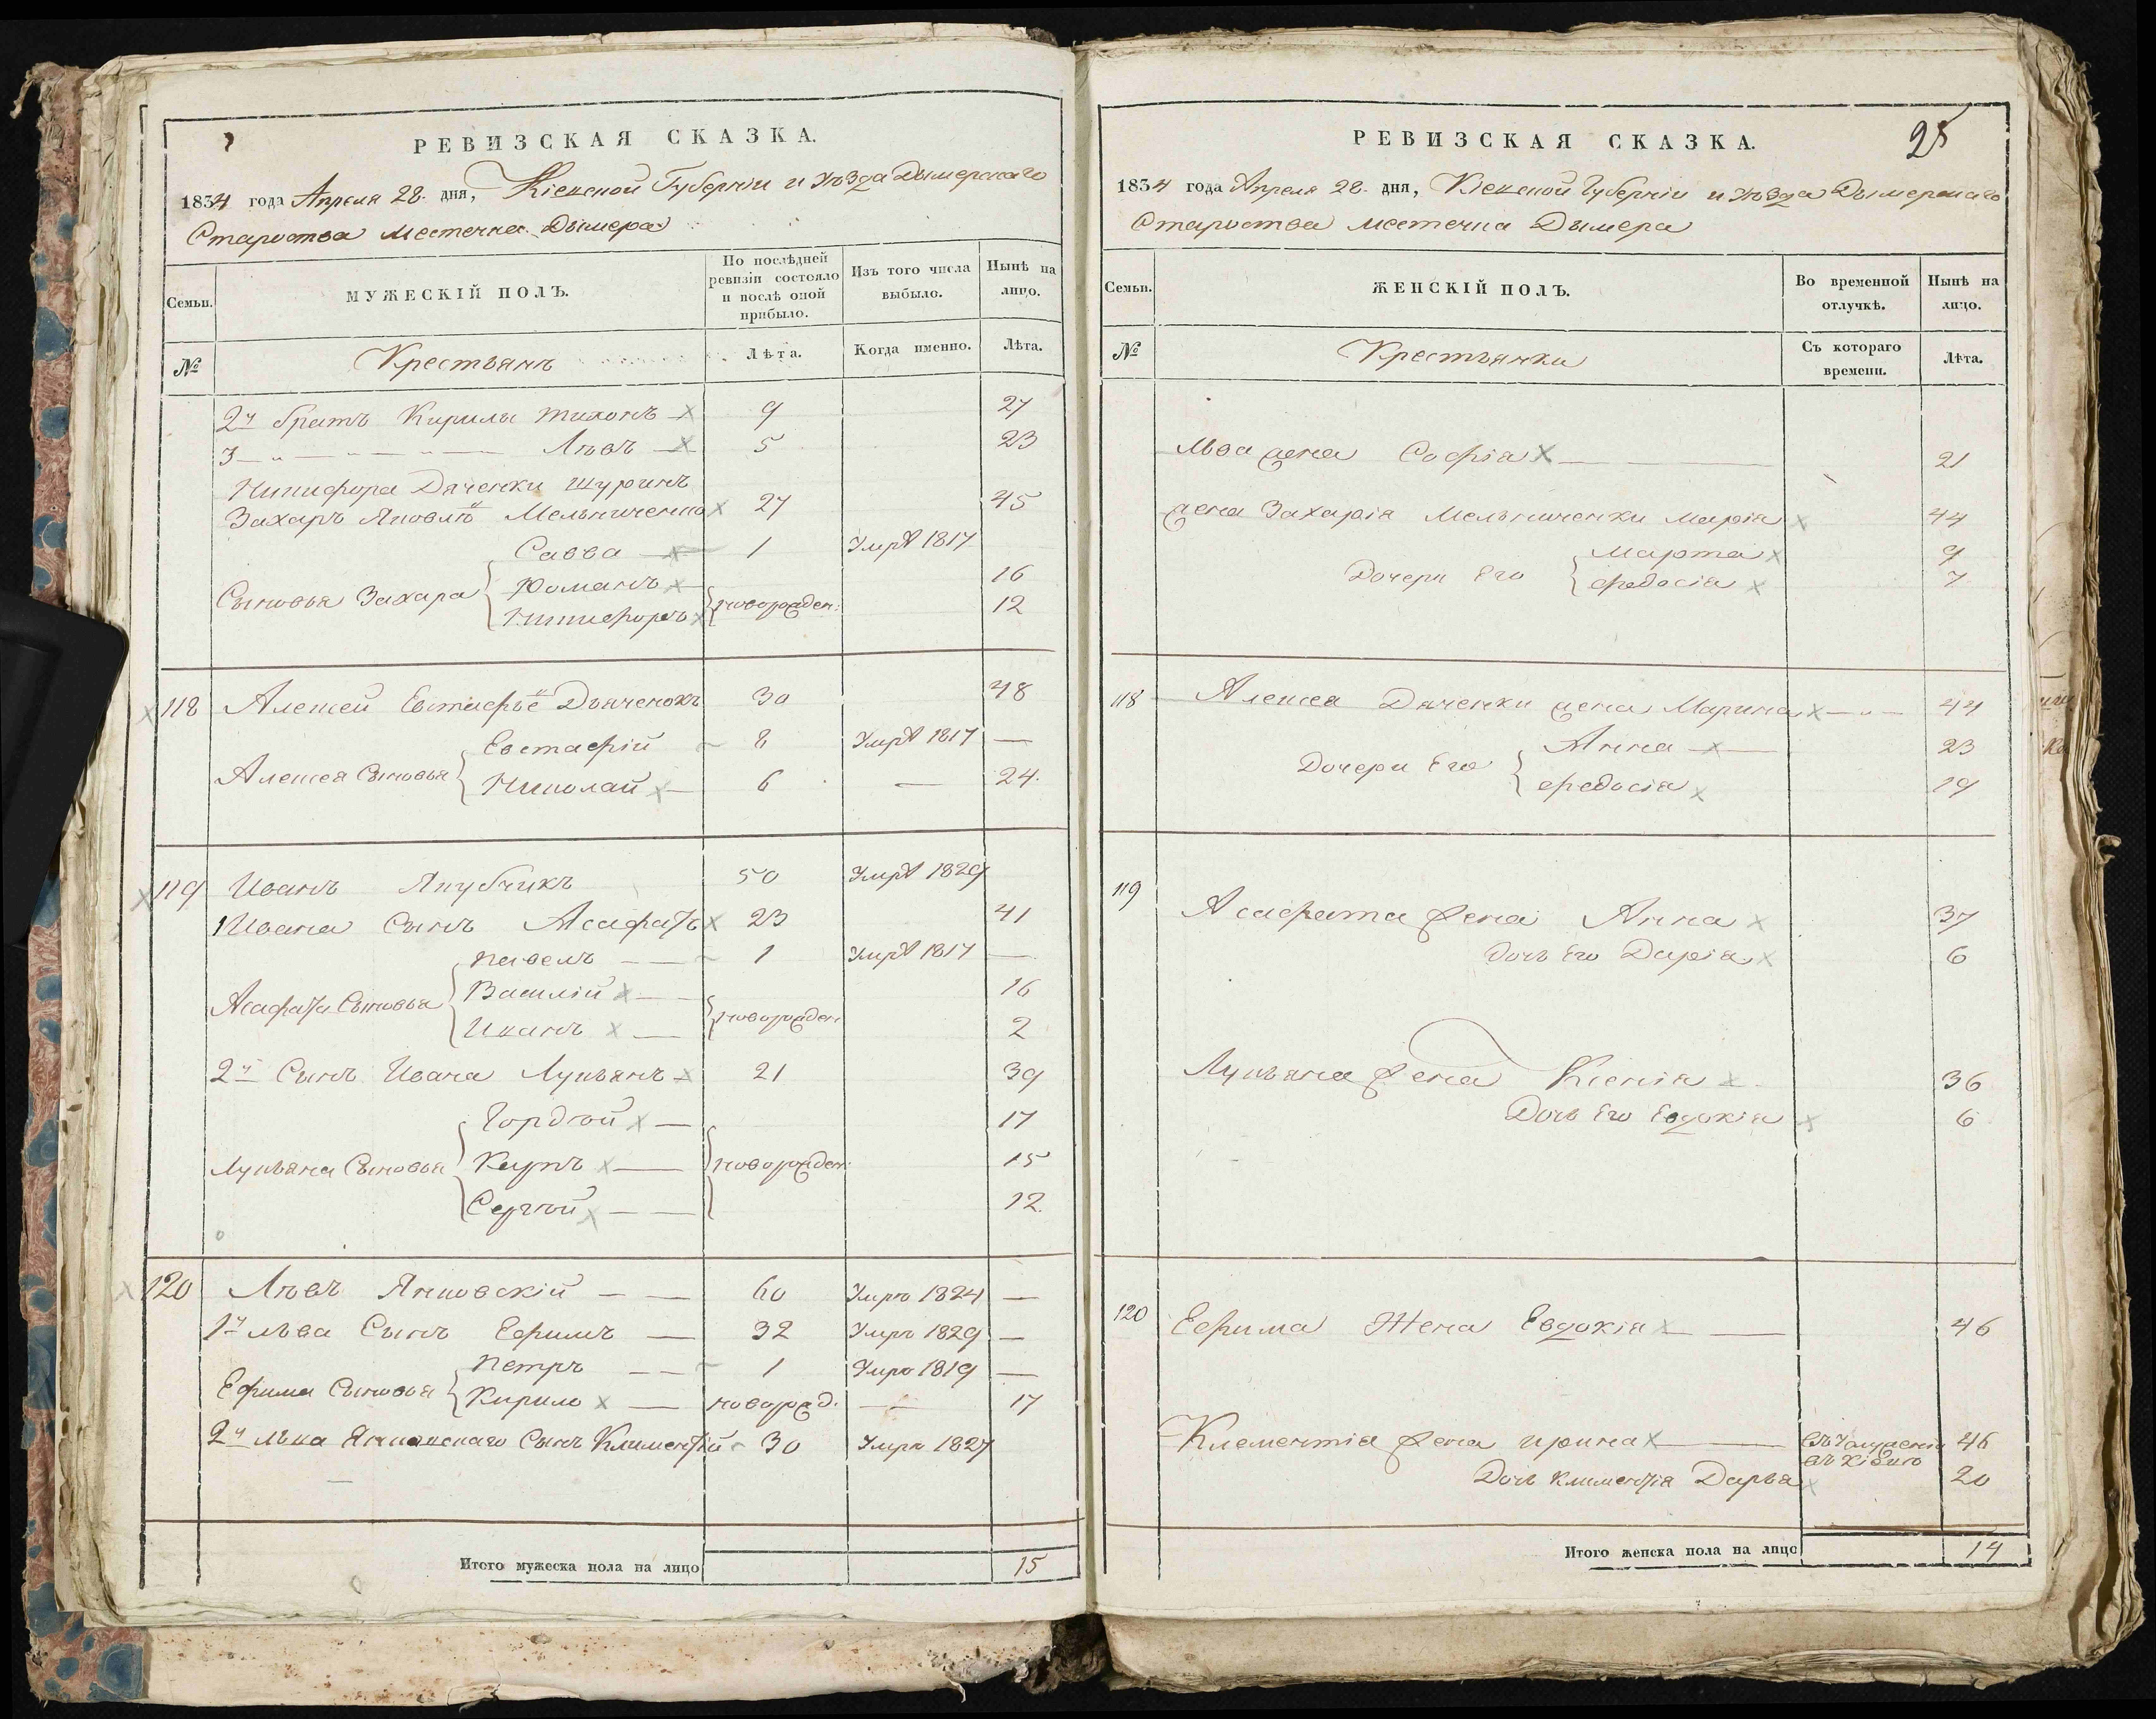 РЕВИЗСКАЯ СКАЗКА.
1834 года Апреля 28. дня, Кіевской Губерніи и Уѣзда Дымерскаго
Староства местечка Дымера
Семьи. МУЖЕСКІЙ ПОЛЪ. По послѣдней ревизіи состояло и послѣ оной прибыло. Изъ того числа выбыло. Нынѣ на лицо.
№ Крестьянъ Лѣта. Когда именно. Лѣта.
2й братъ Кирилы Тихонъ 9 27
3 — „ — „ — Лѣвъ 5 23
Никифора Дяченки шуринъ
Захаръ Яковлѣ Мельниченко 27 45
Савва 1 Умръ 1817
Сыновья Захара Романъ 16
Никифоръ новорожден: 12
118 Алексей Евстафье Дьяченокъ 30 48
Евстафій 8 Умръ 1817 —
Алексея Сыновья Николай 6 — 24.
119 Иванъ Якубчикъ 50 Умръ 1829
1 Ивана Сынъ Асафатъ 23 41
Павелъ 1 Умръ 1817 —
Асафата Сыновья Василій 16
Иванъ новорожден 2
2й Сынъ Ивана Лукьянъ 21 39
Гордѣй 17
Лукьяна Сыновья Карпъ новорожден: 15
Сергѣй 12.
120 Лѣвъ Янковскій 60 Умръ 1824 —
1й лѣва Сынъ Ефимъ 32 Умръ 1829 —
Петръ 1 Умръ 1819 —
Ефима Сыновья Кирило новорожд. — 17
2й лѣва Янковскаго Сынъ Климентій 30 Умръ 1827
Итого мужеска пола на лицо 15
РЕВИЗСКАЯ СКАЗКА. 25
1834 года Апреля 28. дня, Кіевской Губерніи и Уѣзда Дымерскаго
Староства местечка Дымера
Семьи. ЖЕНСКІЙ ПОЛЪ. Во временной отлучкѣ. Нынѣ на лицо.
№ Крестьянки Съ котораго времени. Лѣта.
Льва жена Софія 21
жена Захарія Мельниченки Марія 44
Марта 9
Дочери Его Федосія 7
118 Алексея Дяченки жена Марина 44
Анна 23
Дочери Его Федосія 19
119 Асафата жена Анна 37
Дочь Его Дарія 6
Лукьяна жена Ксенія 36
Дочь Его Евдокія 6
120 Ефима Жена Евдокія 46
Клементія жена Ирина 46
Дочь Климентія Дарья 20
Итого женска пола на лицо 14